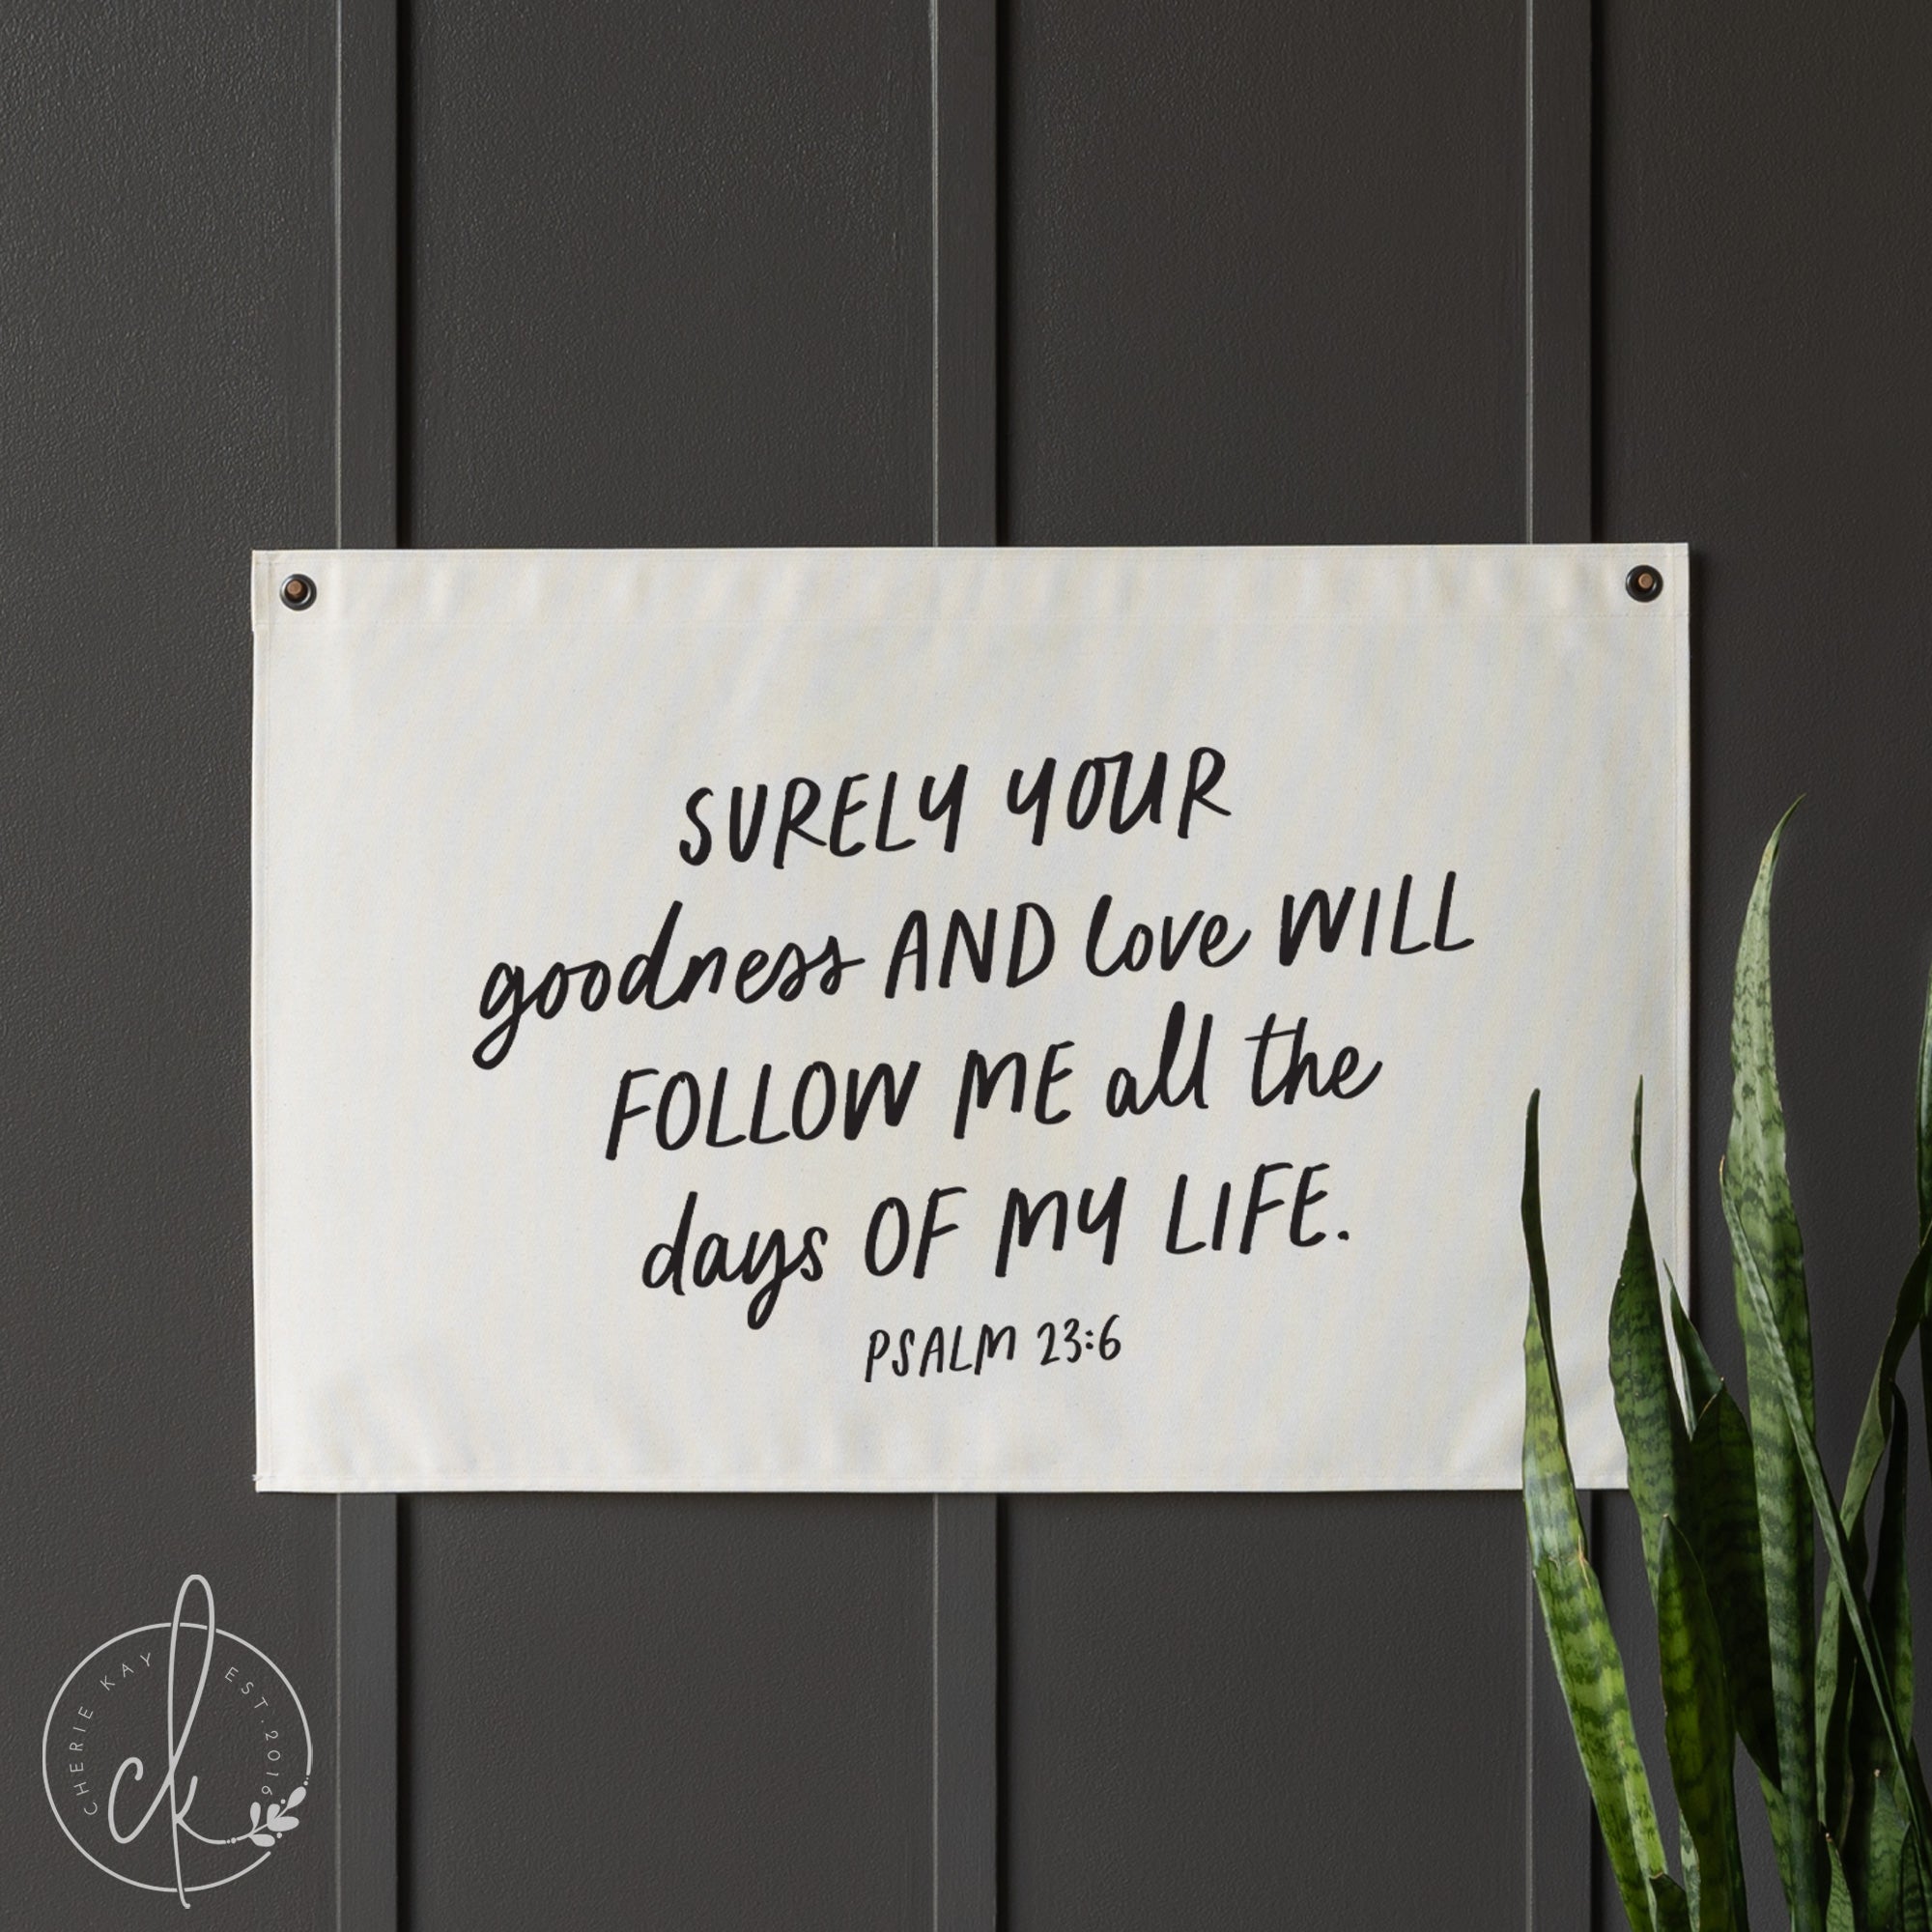 SURELY YOUR
goodness AND love WILL
FOLLOW ME all the
days OF MY LIFE.
PSALM 23:6
CHERIE KAY
EST. 2016
ck